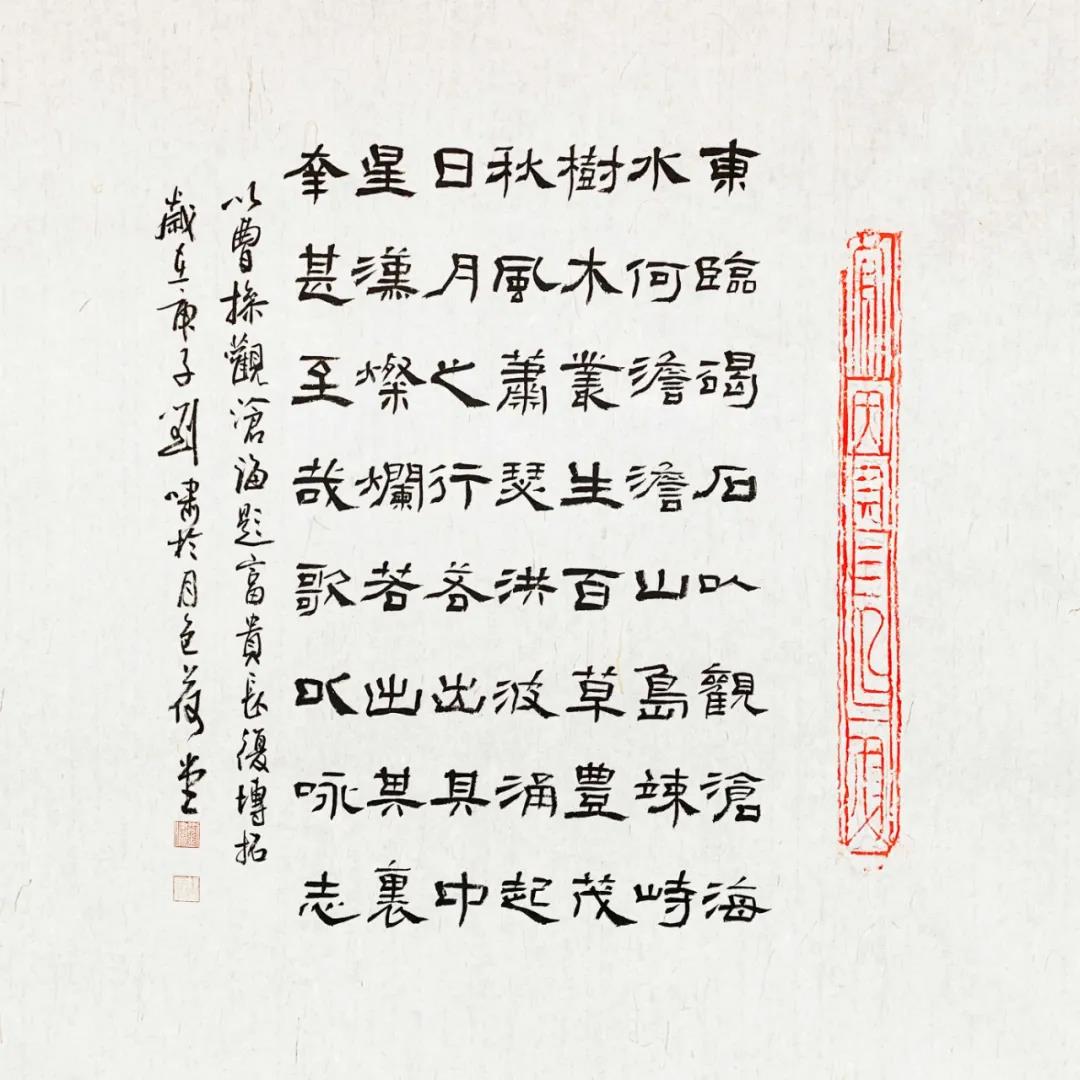 東臨碣石以觀滄海
水何澹澹山島竦峙
樹木叢生百草豐茂
秋風蕭瑟洪波涌起
日月之行若出其中
星漢燦爛若出其裏
幸甚至哉歌以咏志
以曹操觀滄海題富貴長復塼拓
歲在庚子劉嘯於月色荷堂